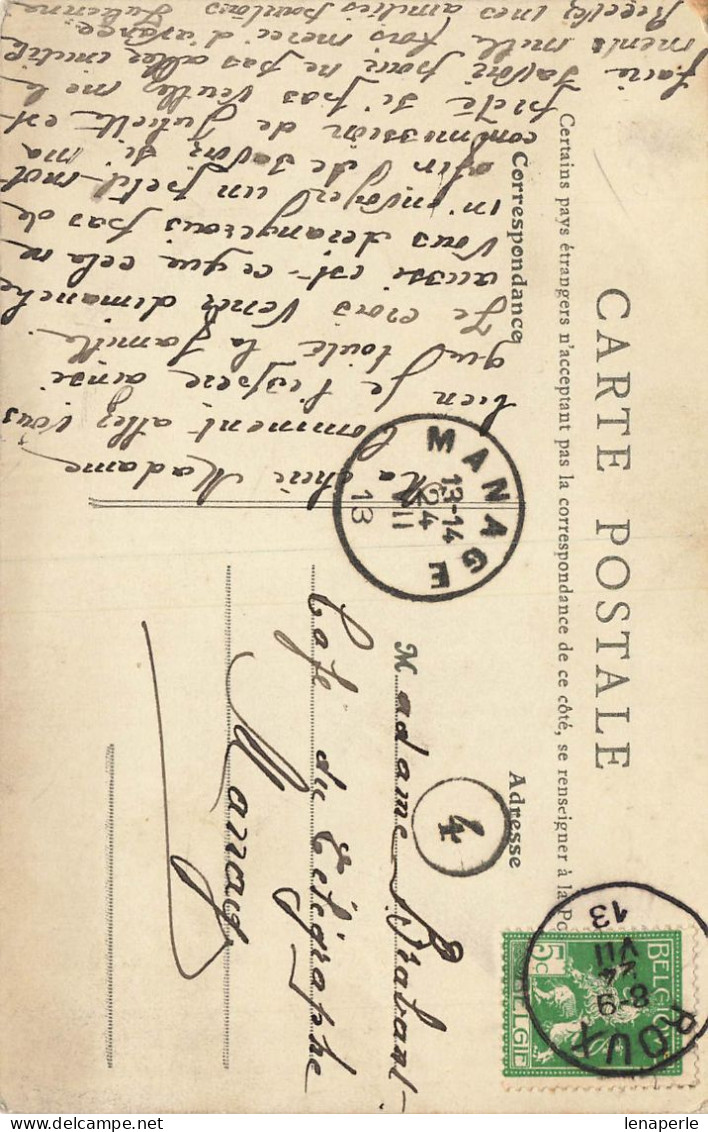 CARTE POSTALE
Certains pays étrangers n'acceptant pas la correspondance de ce côté, se renseigner à la Po
Correspondance
Adresse
Ma chère Madame
Comment allez vous
bien je l'espère ainsi
que toute la famille.
Je crois venir dimanche
aussi est-ce que cela ne
vous derangerais pas de
m'envoyer un petit mot
afin de savoir si ma
commission de Juliette est
prete si pas veuillez me le
faire savoir pour ne pas aller inutile
ments mille fois merci d'avance
Recevez mes amitiés
MANAGE
13-14
24
VII
13
Madame Brabant-
Café du Télégraphe
Manage
4
BELGIQUE
5c
BELGIE
ROUX
8-9
24
VII
13
lenaperle